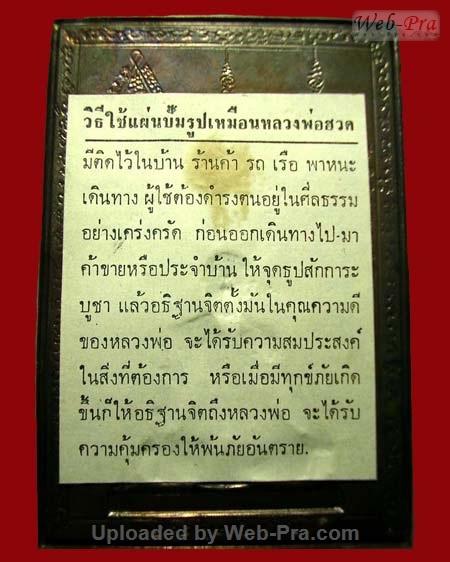 Web-Pra
วิธีใช้แผ่นปั๊มรูปเหมือนหลวงพ่อฮวด
มีติดไว้ในบ้าน ร้านค้า รถ เรือ พาหนะ
เดินทาง ผู้ใช้ต้องดำรงตนอยู่ในศีลธรรม
อย่างเคร่งครัด ก่อนออกเดินทางไป-มา
ค้าขายหรือประจำบ้าน ให้จุดธูปสักการะ
บูชา แล้วอธิฐานจิตตั้งมั่นในคุณความดี
ของหลวงพ่อ จะได้รับความสมประสงค์
ในสิ่งที่ต้องการ หรือเมื่อมีทุกข์ภัยเกิด
ขึ้นก็ให้อธิฐานจิตถึงหลวงพ่อ จะได้รับ
ความคุ้มครองให้พ้นภัยอันตราย.
Uploaded by Web-Pra.com